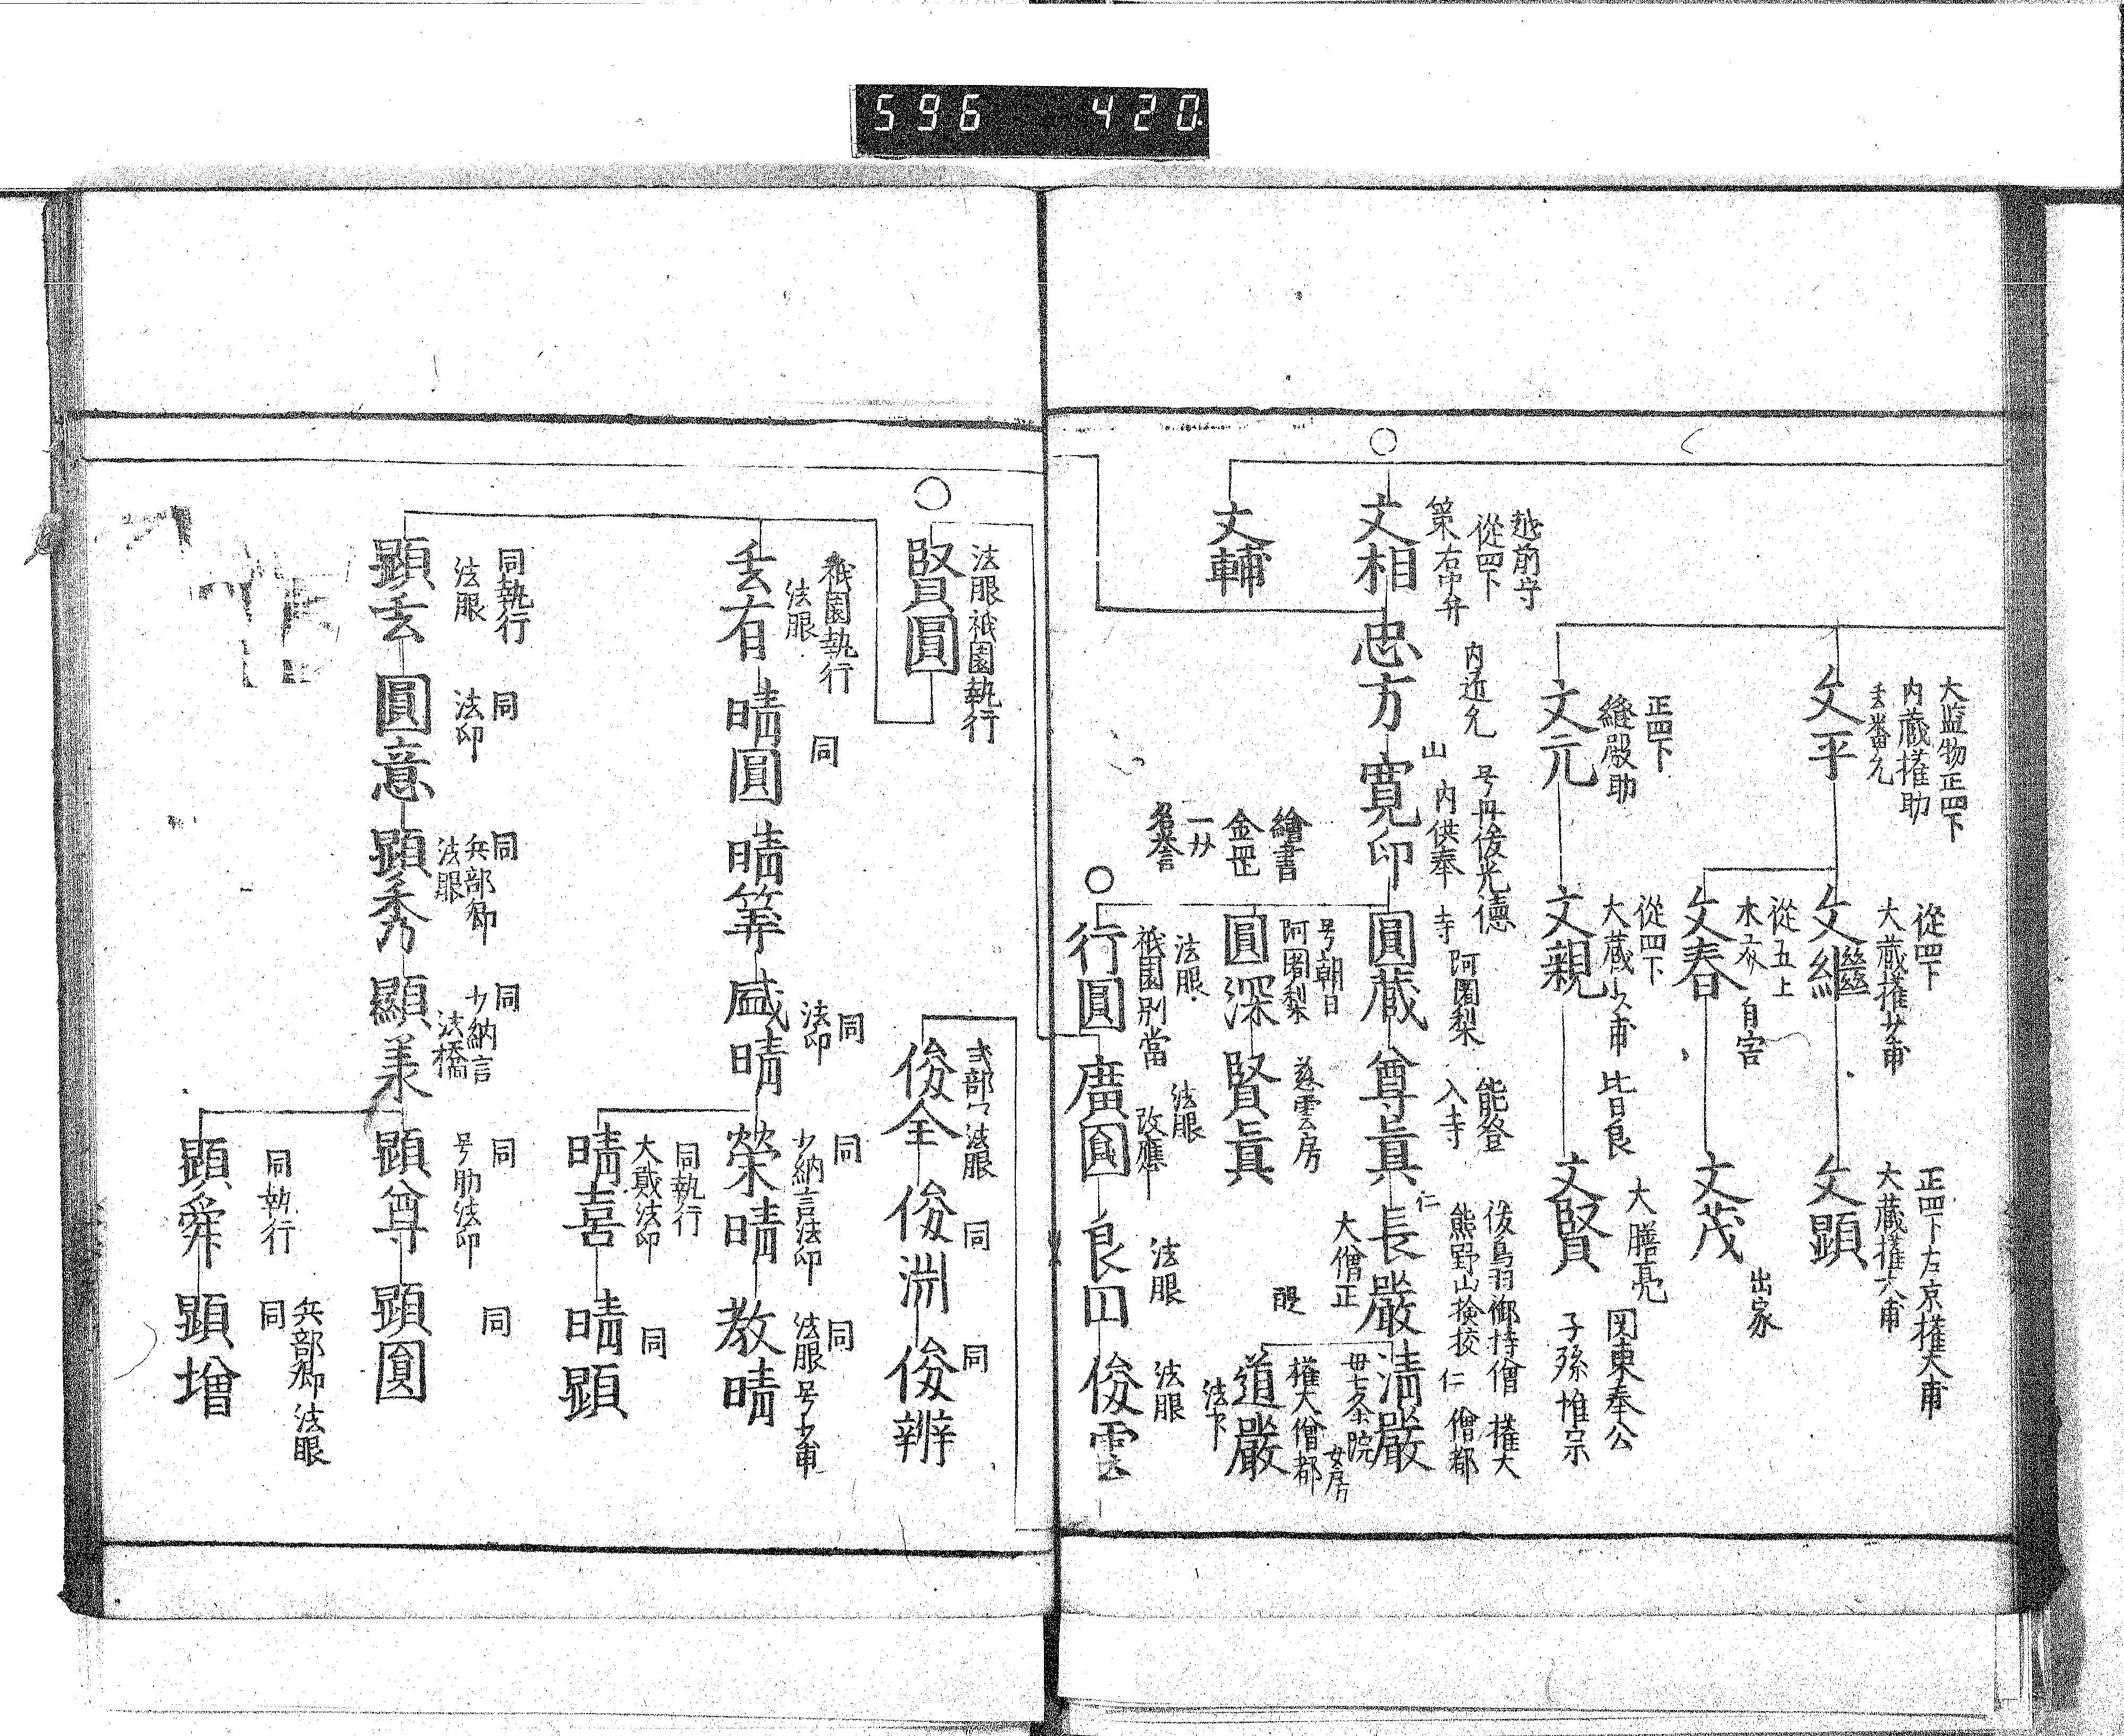 596 420
大監物正四下
内蔵権助
玄番允
文平
従四下
大蔵権少甫
文繼
正四下左京権大甫
大蔵権大甫
文顕
従五上
木
自害
文春
文茂
出家
正四下
縫殿助
文元
従四下
大蔵少甫
皆良
文親
大膳亮
文賢
関東奉公
子孫惟宗
越前守
従四下
策右中弁
文相
内匠允
忠方
号丹後光德
山
内供奉
寛印
寺
阿闍梨
圓蔵
能登
入寺
尊真
後鳥羽御持僧
熊野山検校
仁
長嚴
大僧正
権大
仁
僧都
清嚴
文輔
繪書
金岡
一双
名誉
号朝日
阿闍梨
圓深
慈雲房
賢真
醍
七条院
女房
権大僧都
道嚴
法眼
祇園別當
行圓
法眼
改應
廣圓
法眼
良円
法眼
法下
俊雲
法眼祇園執行
賢圓
式部
法眼
俊全
同
俊淵
同
俊辨
祇園執行
法眼
玄有
同
晴圓
晴筭
同
法印
感晴
同
少納言法印
榮晴
同
法眼号少甫
教晴
同執行
大蔵法印
晴喜
同
晴顕
同執行
法眼
顕玄
同
法印
圓意
同
兵部卿
法眼
顕秀
同
少納言
法橋
顕羕
同
号助法印
顕尊
同
顕圓
同執行
顕舜
兵部卿法眼
同
顕増